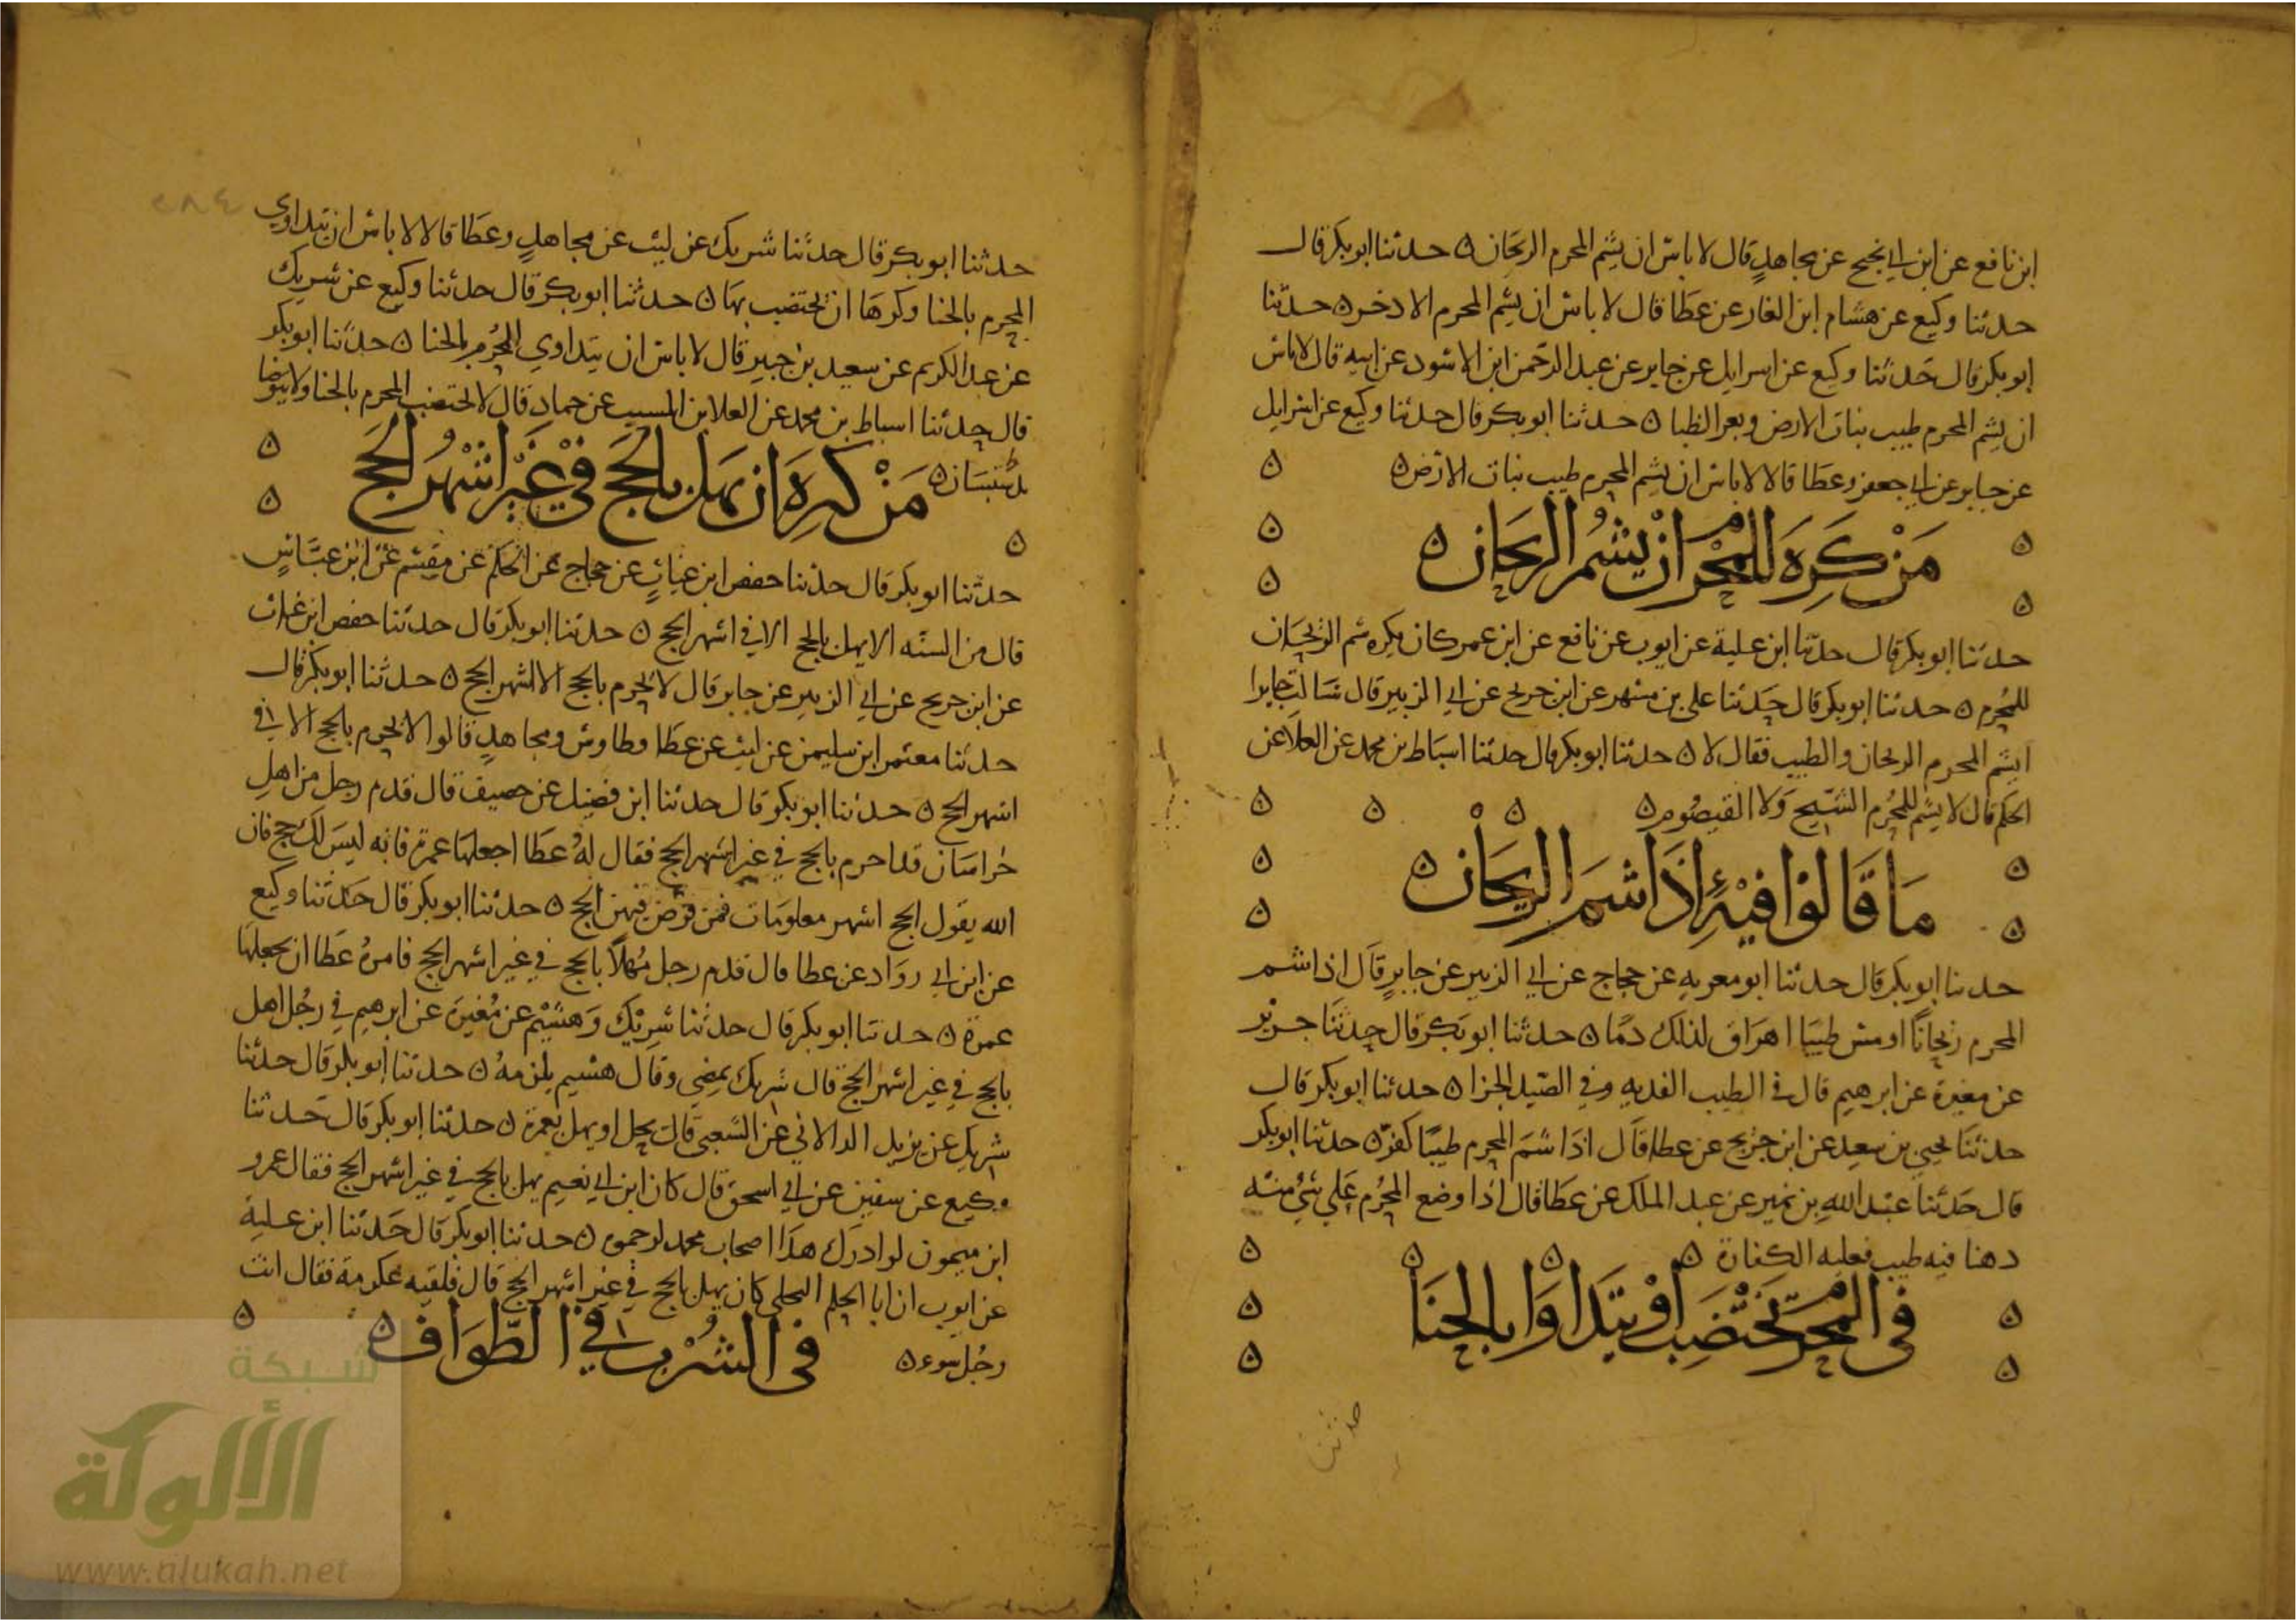 ابن نافع عن ابن ابي نجيح عن مجاهد قال لا باس ان يشم المحرم الريحان ه حدثنا ابو بكر قال
حدثنا وكيع عن هشام ابن الغاز عن عطا قال لا باس ان يشم المحرم الاذخر ه حدثنا
ابو بكر قال حدثنا وكيع عن اسرايل عن جابر عن عبد الرحمن ابن الاسود عن ابيه قال لا باس
ان يشم المحرم طيب نبات الارض وبعر الظبا ه حدثنا ابو بكر قال حدثنا وكيع عن اسرايل
عن جابر عن ابي جعفر وعطا قالا لا باس ان يشم المحرم طيب نبات الارض ه
من كره للمحرم ان يشم الريحان ه
حدثنا ابو بكر قال حدثنا ابن علية عن ايوب عن نافع عن ابن عمر كان يكره شم الريحان
للمحرم ه حدثنا ابو بكر قال حدثنا علي بن مسهر عن ابن جريج عن ابي الزبير قال سالت جابرا
ايشم المحرم الريحان والطيب فقال لا ه حدثنا ابو بكر قال حدثنا اسباط بن محمد عن العلا عن
الحكم قال لا يشم للمحرم الشيح ولا القيصوم ه
ما قالوا فيه اذا شم الريحان ه
حدثنا ابو بكر قال حدثنا ابو معويه عن حجاج عن ابي الزبير عن جابر قال اذا شم
المحرم ريحانا او مس طيبا اهراق لذلك دما ه حدثنا ابو بكر قال حدثنا جرير
عن مغيرة عن ابرهيم قال في الطيب الفديه وفي الصيد الجزا ه حدثنا ابو بكر قال
حدثنا يحيي بن سعيد عن ابن جريج عن عطا قال اذا شم المحرم طيبا كفر ه حدثنا ابو بكر
قال حدثنا عبد الله بن نمير عن عبد الملك عن عطا قال اذا وضع المحرم علي شي منه
دهنا فيه طيب فعليه الكفارة ه
في المحرم يختضب او يتداوا بالحنا
حدثنا
حدثنا ابو بكر قال حدثنا شريك عن ليث عن مجاهد وعطا قالا لا باس ان يتداوي
المحرم بالحنا وكرها ان يختضب بها ه حدثنا ابو بكر قال حدثنا وكيع عن شريك
عن عبد الكريم عن سعيد بن جبير قال لا باس ان يتداوي المحرم بالحنا ه حدثنا ابو بكر
قال حدثنا اسباط بن محمد عن العلا بن المسيب عن حماد قال لا يختضب المحرم بالحنا ولا يتوضا
من كره ان يهل بالحج في غير اشهر الحج
حدثنا ابو بكر قال حدثنا حفص ابن غياث عن حجاج عن الحكم عن مقسم عن ابن عباس
قال من السنه الا يهل بالحج الا في اشهر الحج ه حدثنا ابو بكر قال حدثنا حفص ابن غياث
عن ابن جريج عن ابي الزبير عن جابر قال لا يحرم بالحج الا اشهر الحج ه حدثنا ابو بكر قال
حدثنا معتمر ابن سليمن عن ليث عن عطا وطاوس ومجاهد قالوا لا يحرم بالحج الا في
اشهر الحج ه حدثنا ابو بكر قال حدثنا ابن فضيل عن حصيف قال قدم رجل من اهل
خراسان قد احرم بالحج في غير اشهر الحج فقال له عطا اجعلها عمرة فانه ليس لك حج فان
الله يقول الحج اشهر معلومات فمن فرض فيهن الحج ه حدثنا ابو بكر قال حدثنا وكيع
عن ابن ابي رواد عن عطا قال قدم رجل مهلا بالحج في غير اشهر الحج فامره عطا ان يجعلها
عمرة ه حدثنا ابو بكر قال حدثنا شريك وهشيم عن مغيرة عن ابرهيم في رجل اهل
بالحج في غير اشهر الحج قال شريك يمضي وقال هشيم يلزمه ه حدثنا ابو بكر قال حدثنا
شريك عن يزيد الدالاني عن الشعبي قال يحل او يهل بعمرة ه حدثنا ابو بكر قال حدثنا
وكيع عن سفين عن ابي اسحق قال كان ابن ابي نعيم يهل بالحج في غير اشهر الحج فقال عمرو
ابن ميمون لو ادرك هذا اصحاب محمد لرجموه ه حدثنا ابو بكر قال حدثنا ابن علية
عن ايوب ان ابا الحكم البجلي كان يهل بالحج في غير اشهر الحج قال فلقيه عكرمة فقال انت
رجل سوء ه في الشرب في الطواف ه
شبكة
الألوكة
www.alukah.net